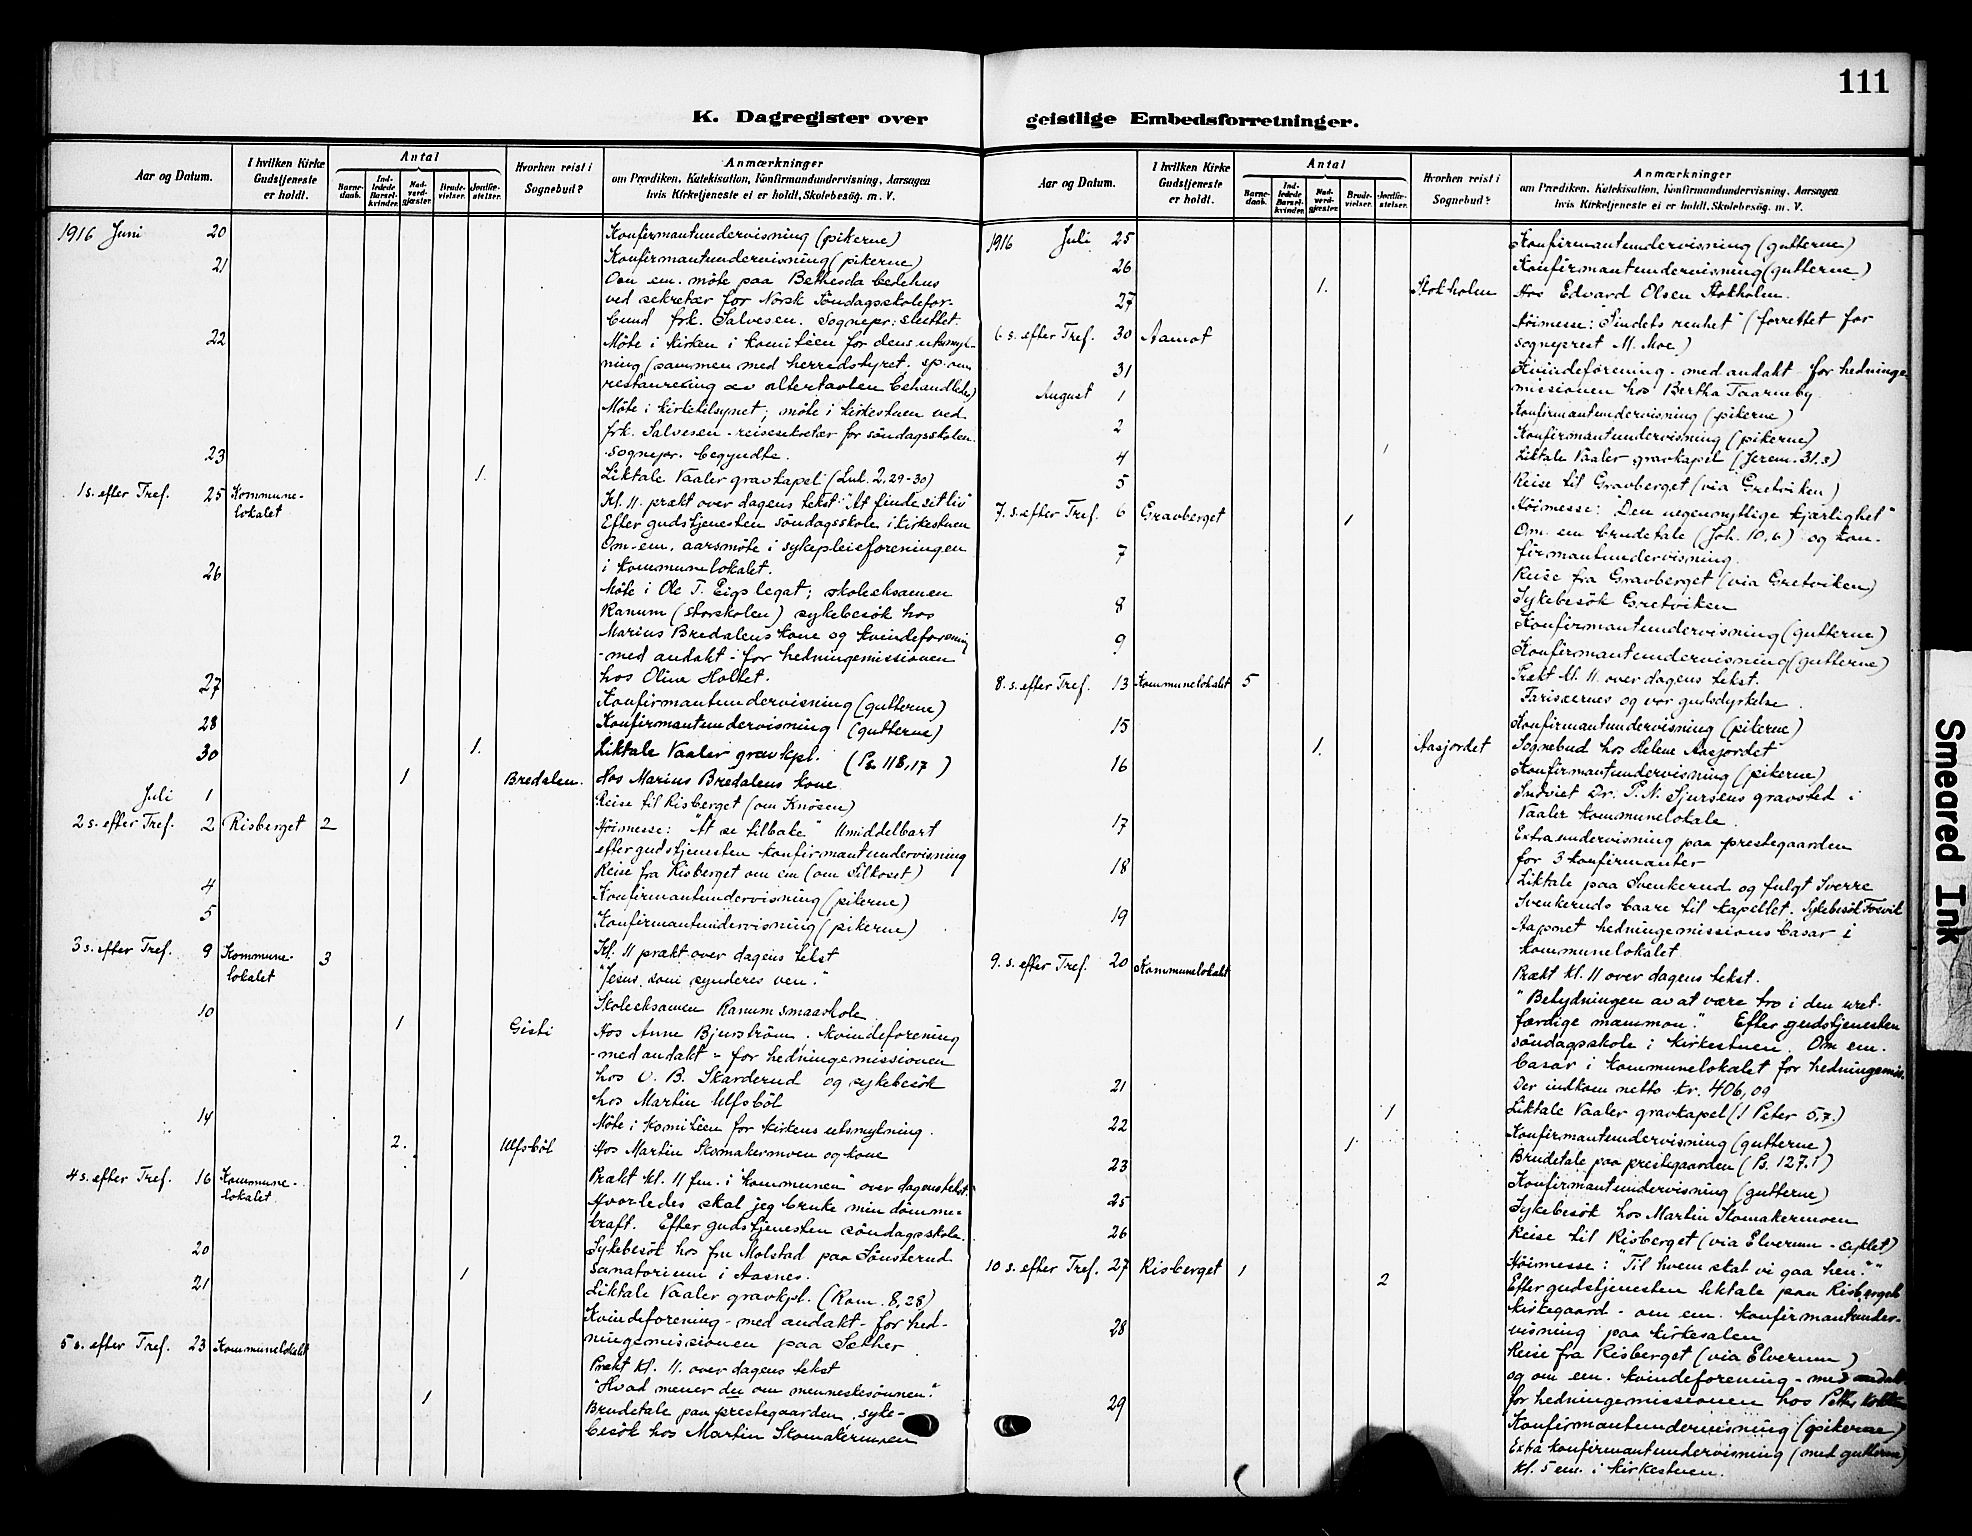 111
K. Dagregister over geistlige Embedsforretninger.
Aar og Datum.
I hvilken Kirke Gudstjeneste er holdt.
Antal
Barne-daab.
Ind-ledede Barsel-kvinder.
Nad-verd-gjæster.
Brude-vielser.
Jordfæ-stelser.
Hvorhen reist i Sognebud?
Anmærkninger
om Prædiken, Katekisation, Konfirmandundervisning, Aarsagen
hvis Kirketjeneste ei er holdt, Skolebesøg. m. V.
1916 Juni 20 Konfirmantundervisning (pikerne)
21 Konfirmantundervisning (pikerne)
Om em. møte paa Bethesda bedehus
ved sekretær for Norsk Søndagsskolefor-
bund frk. Salvesen. Sognepr. sluttet.
22 Møte i kirken i komitéen for dens utsmyk-
ning (sammen med herredstyret. sp. om
restaurering av altertavlen behandledes)
Møte i kirketilsynet; møte i kirkestuen ved
frk. Salvesen - reisesekretær for søndagsskolen.
23 Sognepr. begyndte.
1. Liktale Vaaler gravkapel (Luk. 2,29-30)
1 s. efter Tref. 25 Kommune-lokalet Kl. 11. prækt over dagens tekst: "At finde sit liv"
Efter gudstjenesten søndagsskole i kirkestuen
Om em. aarsmøte i sykepleieforeningen
i kommunelokalet.
26 Møte i Ole T. Eigs legat; skoleeksamen
Ranum (storskolen) sykebesøk hos
Marius Bredalens kone og kvindeforening
- med andakt - for hedningemissionen
hos Oline Holtet.
27 Konfirmantundervisning (gutterne)
28 Konfirmantundervisning (gutterne)
30 1. Liktale Vaaler gravkpl. (Ps. 118,17)
1 Bredalen. Hos Marius Bredalens kone
Juli 1 Reise til Risberget (om Knösen)
2 s. efter Tref. 2 Risberget 2 Høimesse: "At se tilbake" Umiddelbart
efter gudstjenesten konfirmantundervisning
Reise fra Risberget om em (om Silkoset)
4 Konfirmantundervisning (pikerne)
5 Konfirmantundervisning (pikerne)
3 s. efter Tref. 9 Kommune-lokalet 3 Kl. 11 prækt over dagens tekst
"Jesus som synderes ven."
10 Skoleeksamen Ranum smaaskole
1 Gisti Hos Anne Bjurström. Kvindeforening
- med andakt - for hedningemissionen
hos O. B. Skarderud og sykebesök
hos Martin Ulfsböl
14 Møte i komitéen for kirkens utsmykning.
2. Ulfsböl Hos Martin Skomakermoen og kone
4 s. efter Tref. 16 Kommune-lokalet Prækt kl. 11 fm. i "Kommunen" over dagens tekst:
Hvorledes skal jeg bruke min dömme-
kraft. Efter gudstjenesten søndagsskole.
20 Sykebesök hos fru Molstad paa Sönsterud
sanatorium i Aasnes.
21 1 Liktale Vaaler gravkpl. (Rom. 8,28)
Kvindeforening - med andakt - for hed-
ningemissionen paa Sæther
5 s. efter Tref. 23 Kommunelokalet Prækt kl. 11. over dagens tekst
"Hvad mener du om menneskesønnen."
1 Brudetale paa prestegaarden. syke-
besök hos Martin Skomakermoen
Aar og Datum.
I hvilken Kirke Gudstjeneste er holdt.
Antal
Barne-daab.
Ind-ledede Barsel-kvinder.
Nad-verd-gjæster.
Brude-vielser.
Jordfæ-stelser.
Hvorhen reist i Sognebud?
Anmærkninger
om Prædiken, Katekisation, Konfirmandundervisning, Aarsagen
hvis Kirketjeneste ei er holdt, Skolebesøg. m. V.
1916 Juli 25 Konfirmantundervisning (gutterne)
26 Konfirmantundervisning (gutterne)
27 1. Stokholen Hos Edvard Olsen Stokholen.
6 s. efter Tref. 30 Aamot Høimesse: "Sindets renhet" (forrettet for
sogneprest M. Moe)
31 Kvindeforening - med andakt - for hedninge-
missionen hos Bertha Taarneby
August 1 Konfirmantundervisning (pikerne)
2 Konfirmantundervisning (pikerne)
4 1 Liktale Vaaler gravkapel (Jerem. 31.3)
5 Reise til Gravberget (via Gretviken)
7. s. efter Tref. 6 Gravberget 1 Høimesse: "Den uegennyttige kjærlighet"
Om em brudetale (Joh. 10,6) og kon-
firmantundervisning.
7 Reise fra Gravberget (via Gretviken)
Sykebesök Gretviken
8 Konfirmantundervisning (gutterne)
9 Konfirmantundervisning (gutterne)
8. s. efter Tref. 13 Kommunelokalet 5 Prækt kl. 11. over dagens tekst.
Farisæernes og vor gudsdyrkelse.
15 Konfirmantundervisning (pikerne)
1. Aasjordet Sognebud hos Helene Aasjordet
16 Konfirmantundervisning (pikerne)
Indviet Dr. P. N. Sjursens gravsted i
Vaaler kommunelokale.
17 Extraundervisning paa prestegaarden
for 3 konfirmanter
18 Liktale paa Svenkerud og fulgt Sverre
Svenkeruds baare til kapellet. Sykebesök
19 Aapnet hedningemissions basar i
kommunelokalet
9. s. efter Tref. 20 Kommunelokalet Prækt kl. 11 over dagens tekst.
"Betydningen av at være tro i den uret-
færdige mammon." Efter gudstjenesten
søndagsskole i kirkestuen. Om em.
basar i kommunelokalet for hedningemis.
Der indkom netto kr. 406,09
21 1 Liktale Vaaler gravkapel (1 Peter 5,7.)
22 Konfirmantundervisning (gutterne)
1. Brudetale paa prestegaarden (Ps. 127.1)
23 Konfirmantundervisning (gutterne)
25 Sykebesök hos Martin Skomakermoen
26 Reise til Risberget (via Elverum - cyklet)
10 s. efter Tref. 27 Risberget 1 Høimesse: "Til hvem skal vi gaa hen?"
2 Efter gudstjenesten liktale paa Risberget
kirkegaard - om em. konfirmantunder-
visning paa kirkesalen
28 Reise fra Risberget (via Elverum)
og om em. kvindeforening - med andakt
for hedningemissionen hos
29 Konfirmantundervisning (pikerne)
Extra konfirmantundervisning (med gutterne)
kl. 5 em. i kirkestuen.
Smeared Ink